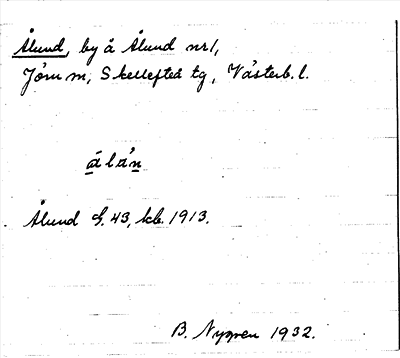 Ålund, by å Ålund nr 1,
Jörn sn, Skellefteå tg, Västerb. l.
Ålund G. 43, kb. 1913.
B. Nygren 1932.